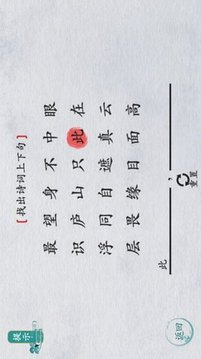 提示
[找出诗词上下句]
最望身不中眼
识庐山只此在
浮同自遮真云
层畏缘目面高
此
，
重置
返回